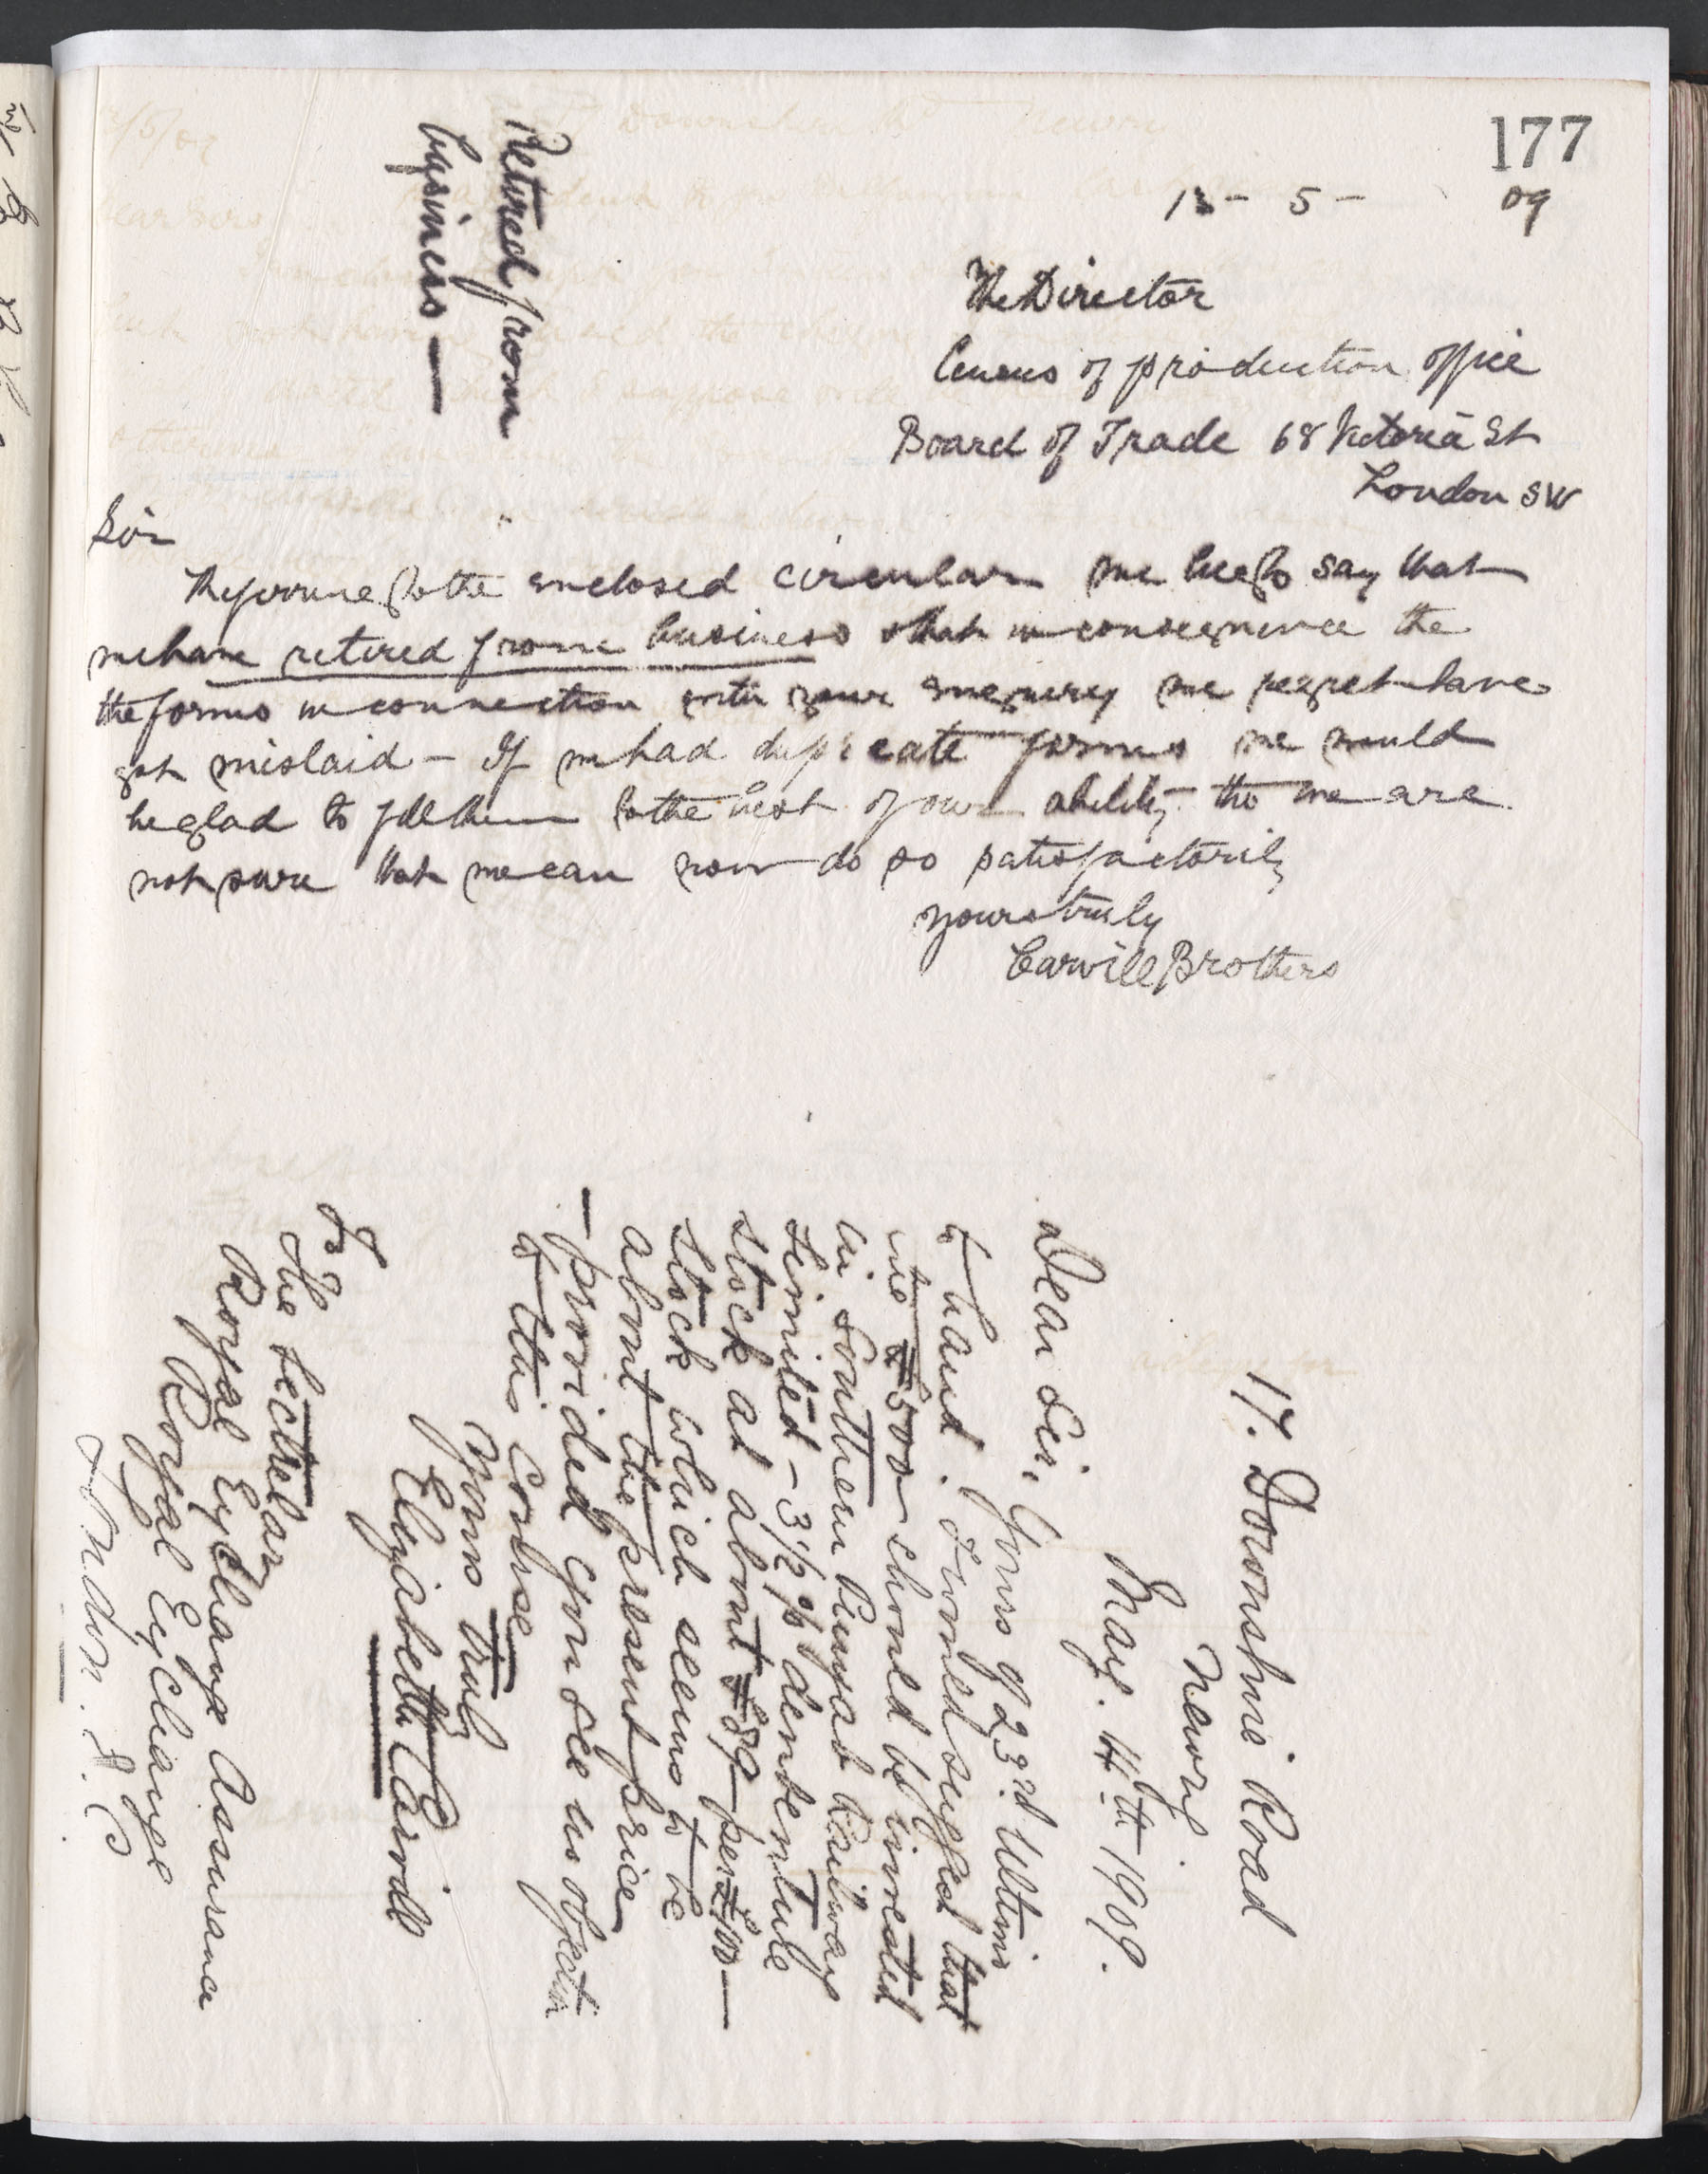 177
Retired from
business —
13 - 5 - 09
The Director
Census of production office
Board of Trade 68 Victoria St
London SW
Sir
Referring to the enclosed circular we beg to say that
we have retired from business & that in consequence the
the forms in connection with your enquiry we regret have
got mislaid - If we had duplicate forms we would
be glad to fill them to the best of our ability tho we are
not sure that we can now do so satisfactorily
yours truly
Carvill Brothers
17. Downshire Road
Newry
May. 4th 1909.
Dear Sir, Yours of 23rd Ultimo
to hand. I would suggest that
the £500 should be invested
in Southern Punjab Railway
Limited - 3 1/2 % debenture
stock at about £89 per £100 —
stock which seems to be
about the present price
— provided you see no objection
to this course
Yours truly
Elizabeth Carvill
To
The Secretary
Royal Exchange Assurance
Royal Exchange
London. E.C